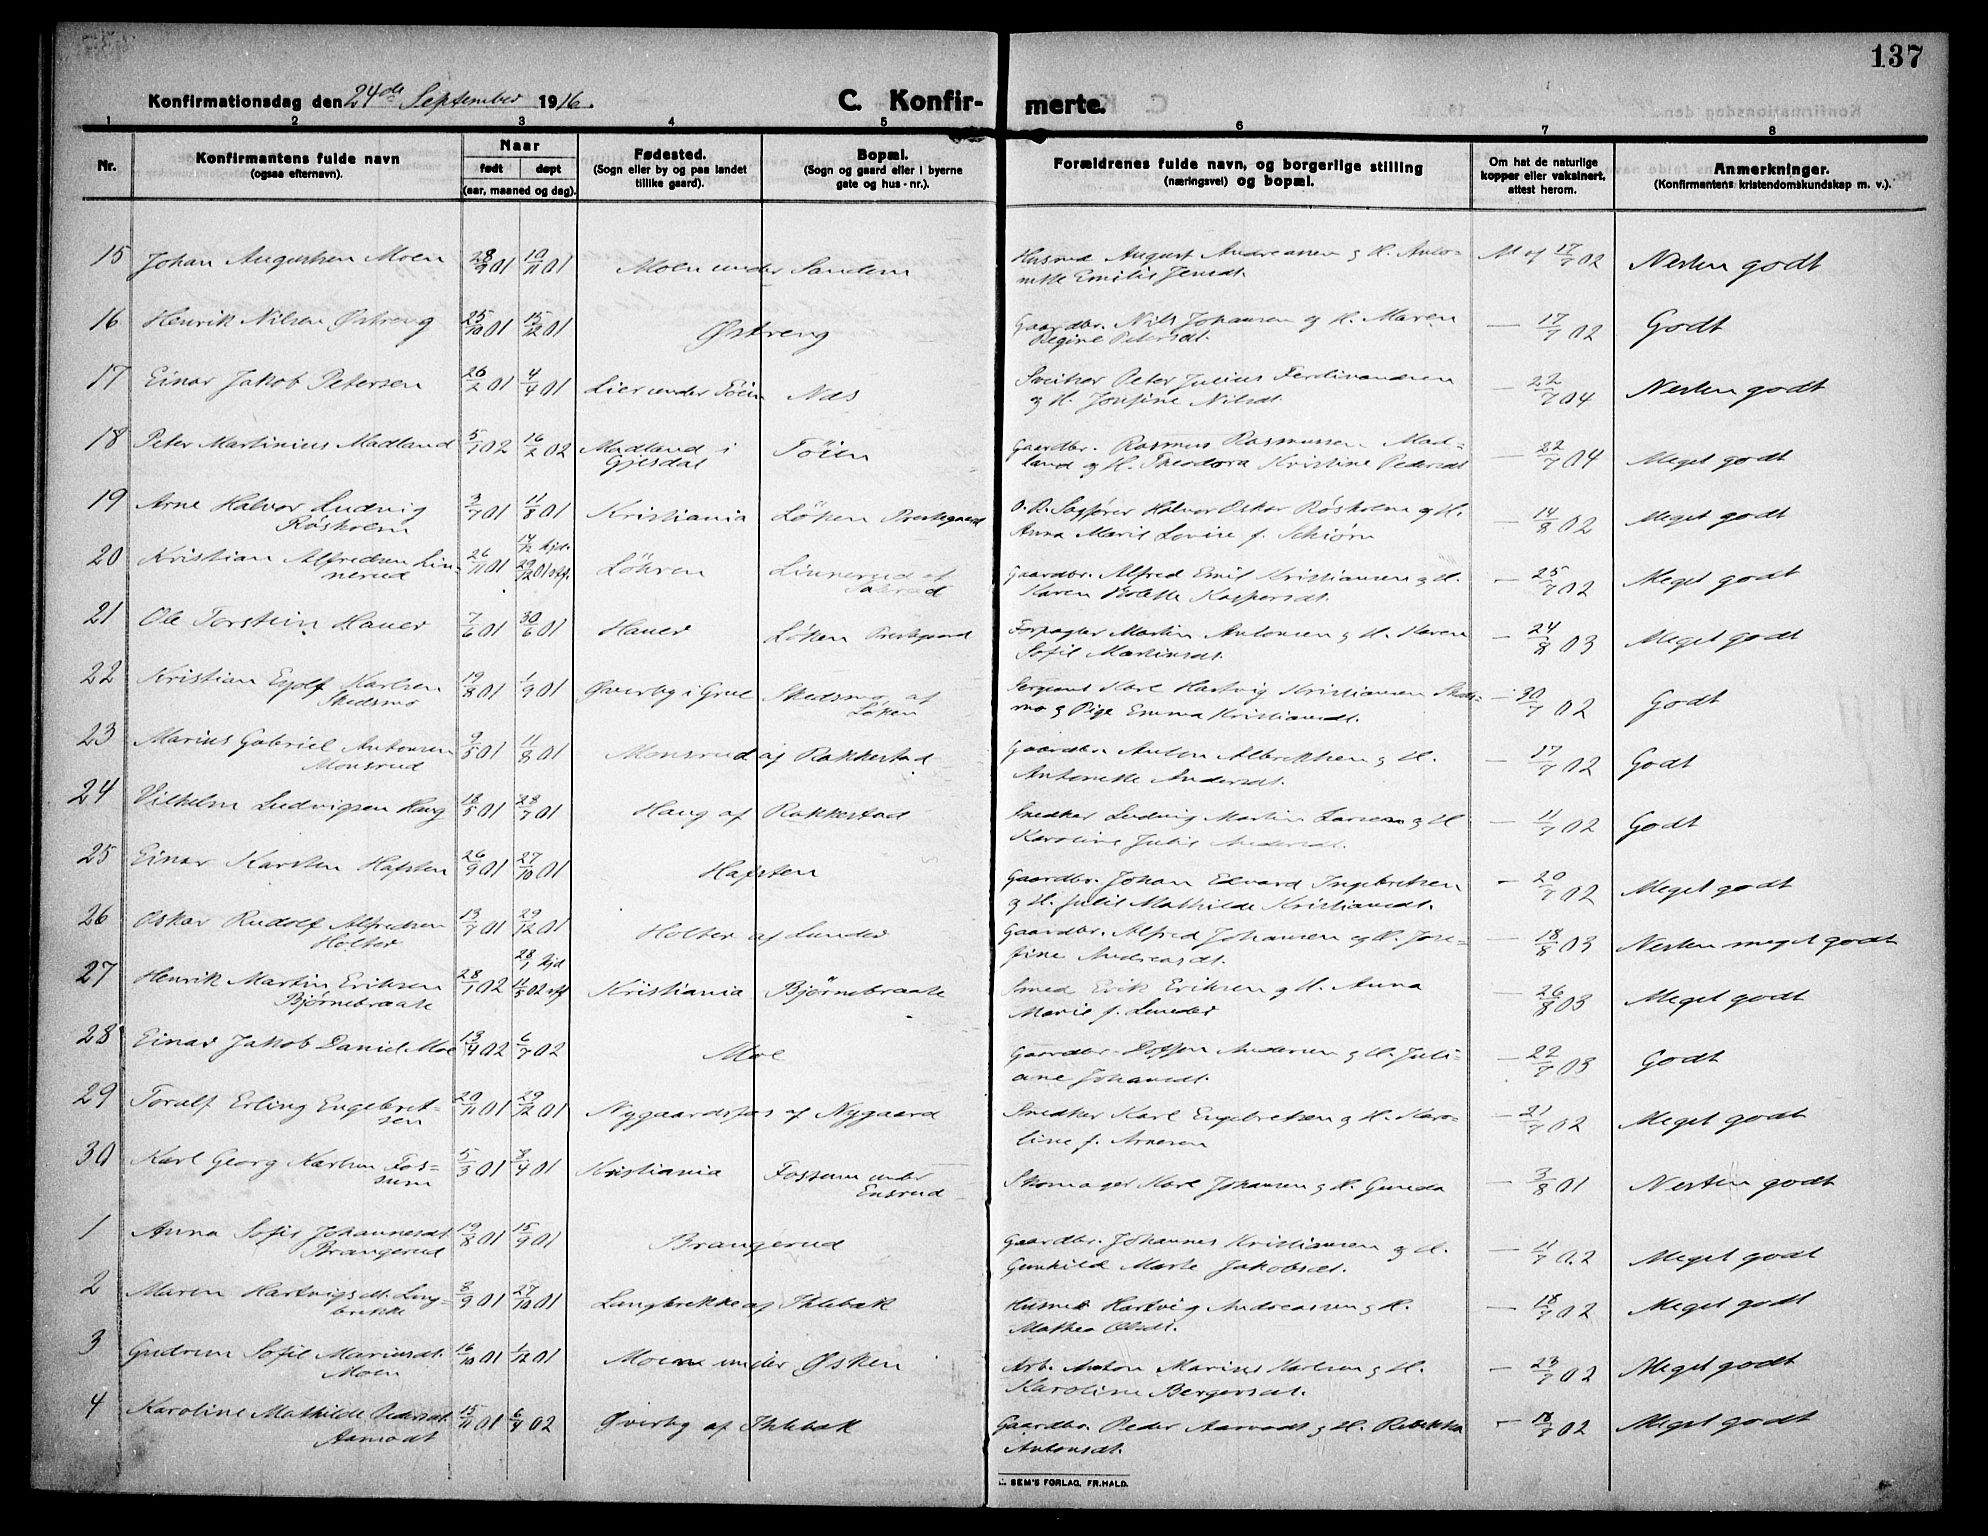 137
Konfirmationsdag den 24de September 1916.
C. Konfir- merte.
1 2 3 4 5 6 7 8
Nr.
Konfirmantens fulde navn
(ogsaa efternavn).
Naar
født døpt
(aar, maaned og dag).
Fødested.
(Sogn eller by og paa landet
tillike gaard).
Bopæl.
(Sogn og gaard eller i byerne
gate og hus-nr.).
Forældrenes fulde navn, og borgerlige stilling
(næringsvei) og bopæl.
Om hat de naturlige
kopper eller vaksinert,
attest herom.
Anmerkninger.
(Konfirmantens kristendomskundskap m. v.).
15 Johan Augustsen Moen 28/9 01 10/11 01 Moen under Sandem Husmd August Andreassen og H. Anto-
nette Emilie Jensdt. At af 17/7 02 Nesten godt
16 Henrik Nilsen Østreng 25/10 01 15/12 01 Østreng Gaardbr. Nils Johansen og H. Maren
Regine Petersdt. — 17/7 02 Godt
17 Einar Jakob Petersen 26/2 01 4/4 01 Lier under Töien Næs Sveitser Peter Julius Ferdinandsen
og H. Josefine Nilsdt. — 22/7 04 Nesten godt
18 Peter Martinius Madland 5/1 02 16/2 02 Madland i
Gjesdal Töien Gaardbr. Rasmus Rasmussen Mad-
land og H. Theodora Kristine Pedersdt — 22/7 04 Meget godt
19 Arne Halvor Ludvig
Røsholm 3/7 01 11/8 01 Kristiania Löken Prestegaard O.R. Sagfører Halvor Oskar Røsholm og H.
Anna Marie Lovise f. Schiörn — 14/8 02 Meget godt
20 Kristian Alfredsen Lin-
nerud 26/11 01 14/12 hjd.
29/12 01 stf. Löhren Linnerud af Gaardbr. Alfred Emil Kristiansen og H.
Karen Kaspersdt. — 25/7 02 Meget godt
21 Ole Torstein Haner 7/6 01 30/6 01 Haner Løken Prestegaard Forpagter Martin Antonsen og H. Karen
Sofie Martinsdt. — 24/8 03 Meget godt
22 Kristian Eyolf Karlsen
Skedsmo 19/8 01 1/9 01 Øverby i Grue Skedsmo af
Løken Sergeant Karl Hartvig Kristiansen Skeds-
mo og Pige Emma Kristiansdt. — 30/7 02 Godt
23 Marius Gabriel Antonsen
Monsrud 9/5 01 11/8 01 Monsrud af Rakkestad Gaardbr. Anton Albrektsen og H.
Antonette Andersdt. — 17/7 02 Godt
24 Vilhelm Ludvigsen Haug 18/5 01 28/7 01 Haug af Rakkestad Snedker Ludvig Martin Larsen og H
Karoline Julie Andersdt. — 11/7 02 Godt
25 Einar Karsten Hafsten 26/9 01 27/10 01 Hafsten Gaardbr. Johan Edvard Ingebretsen
og H. Julie Mathilde Kristiansdt. — 20/7 02 Meget godt
26 Oskar Rudolf Alfredsen
Holter 13/7 01 29/12 01 Holter af Lunder Gaardbr. Alfred Johansen og H. Jose-
fine Andreasdt. — 18/8 03 Nesten meget godt
27 Henrik Martin Eriksen
Bjørnebraate 28/1 02 28/1 hjd
11/5 02 stf Kristiania Bjørnebraate Smed Erik Eriksen og H. Anna
Marie f. Lunder — 26/8 03 Meget godt
28 Einar Jakob Daniel. Moe 13/4 02 6/7 02 Moe Gaardbr. Andersen og H. Juli-
ane Johansdt. — 22/7 03 Godt
29 Toralf Erling Engebret-
sen 20/11 01 29/12 01 Nygaardsfos af Nygaard Snedker Karl Engebretsen og H. Karo-
line f. Arnesen — 21/7 02 Meget godt
30 Karl Georg Karlsen Fos-
sum 5/3 01 8/4 01 Kristiania Fossum under
Ensrud Skomager Karl Johansen og H. Gunda — 3/8 01 Nesten godt
1 Anna Sofie Johannesdt.
Brangerud 19/8 01 15/9 01 Brangerud Gaardbr. Johannes Kristiansen og H.
Gunhilde Marte Jakobsdt. — 11/7 02 Meget godt
2 Maren Hartvigsdt. Lang-
brekke 3/9 01 27/10 01 Langbrekke af Ihlebæk Husmd Hartvig Andreassen og H.
Mathea Olsdt. — 18/7 02 Meget godt
3 Gudrun Sofie Mariusdt.
Moen 16/10 01 1/12 01 Moen under Øsken Arb. Anton Marius Karlsen og H.
Karoline Bergersdt. — 23/7 02 Meget godt
4 Karoline Mathilde Pedersdt.
Aamodt 15/11 01 6/4 02 Øverby af Ihlebæk Gaardbr. Peder Aamodt og H. Rebekka
Antonsdt. — 18/7 02 Meget godt
SEM'S FORLAG, FR.HALD.